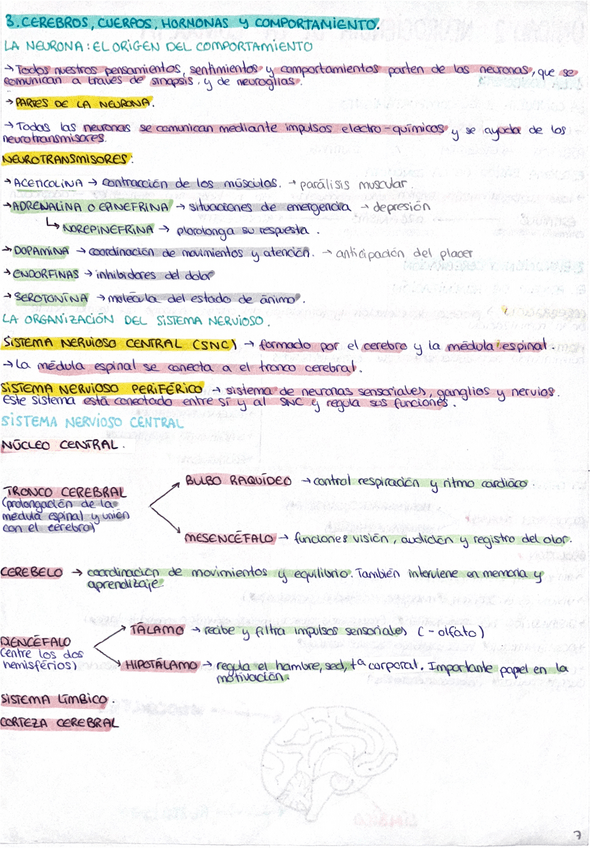 3. CEREBROS, CUERPOS, HORMONAS Y COMPORTAMIENTO.
LA NEURONA: EL ORIGEN DEL COMPORTAMIENTO
→ Todos nuestros pensamientos, sentimientos y comportamientos parten de las neuronas, que se
comunican a través de sinapsis. y de neuroglias.
→ PARTES DE LA NEURONA.
→ Todas las neuronas se comunican mediante impulsos electro-químicos y se ayuda de los
neurotransmisores.
NEUROTRANSMISORES:
→ ACETICOLINA → contracción de los músculos. → parálisis muscular
→ ADRENALINA O EPINEFRINA → situaciones de emergencia → depresión
↳ NOREPINEFRINA → plorolonga su respuesta.
→ DOPAMINA → coordinación de movimientos y atención. → anticipación del placer
→ ENDORFINAS → inhibidores del dolor
→ SEROTONINA → molécula del estado de ánimo.
LA ORGANIZACIÓN DEL SISTEMA NERVIOSO.
SISTEMA NERVIOSO CENTRAL (SNC) → formado por el cerebro y la médula espinal.
→ La médula espinal se conecta a el tronco cerebral.
SISTEMA NERVIOSO PERIFÉRICO → sistema de neuronas sensoriales, ganglios y nervios.
Este sistema está conectado entre sí y al SNC y regula sus funciones.
SISTEMA NERVIOSO CENTRAL
NÚCLEO CENTRAL.
BULBO RAQUÍDEO → control respiración y ritmo cardíaco
TRONCO CEREBRAL
(prolongación de la
médula espinal y unión
con el cerebro)
MESENCÉFALO → funciones visión, audición y registro del dolor.
CEREBELO → coordinación de movimientos y equilibrio. También interviene en memoria y
aprendizaje.
TÁLAMO → recibe y filtra impulsos sensoriales (- olfato)
DIENCÉFALO
(entre los dos
hemisferios)
HIPOTÁLAMO → regula el hambre, sed, tª corporal. Importante papel en la
motivación.
SISTEMA LÍMBICO.
CORTEZA CEREBRAL
7